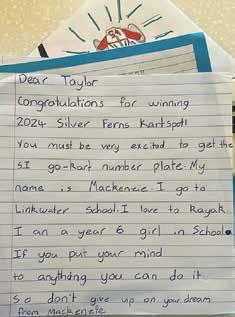 Dear Taylor
Congratulations for winning
2024 Silver Ferns Kartspot!
You must be very excited to get the
S.I go-kart number plate. My
name is Mackenzie. I go to
Linkwater School. I love to Kayak.
I an a year 6 girl in School.
If you put your mind
to anything you can do it
So don't give up on your dream
from Mackenzie